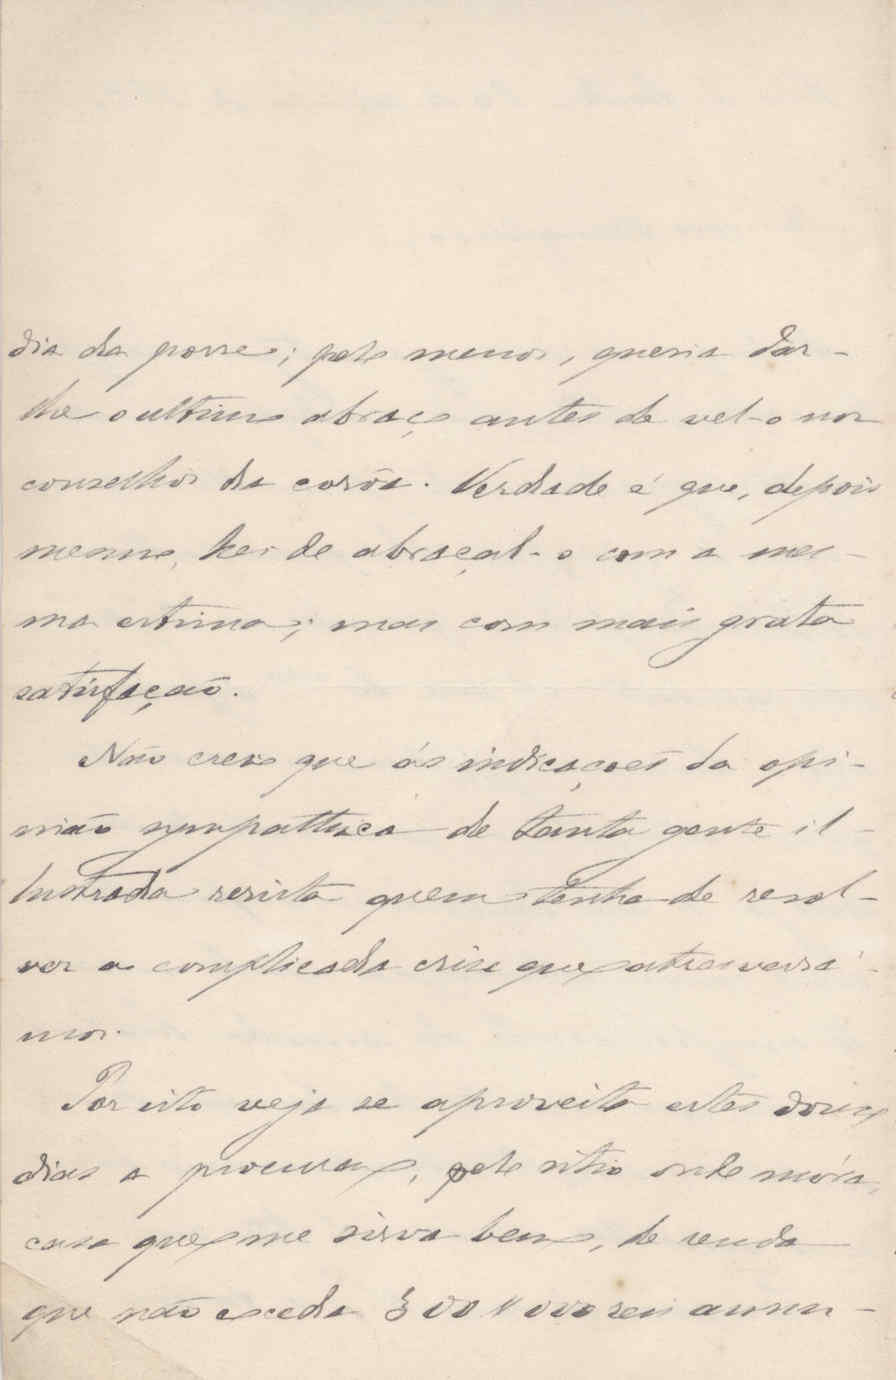 dia da posse; pelo menos, queria dar-
lhe o ultimo abraço antes de vel-o nos
conselhos da corôa. Verdade é que, depois
mesmo, hei de abraçal-o com a mes-
ma estima; mas com mais grata
satisfação.
Não creio que ás indicações da opi-
nião sympathica de tanta gente il-
lustrada resista quem tenha de resol-
ver a complicada crise que atravessa-
mos.
Por isto veja se aproveita estes dous
dias a procurar, pelo sitio onde móra,
casa que me sirva bem, de renda
que não exceda 300$000 reis annu-